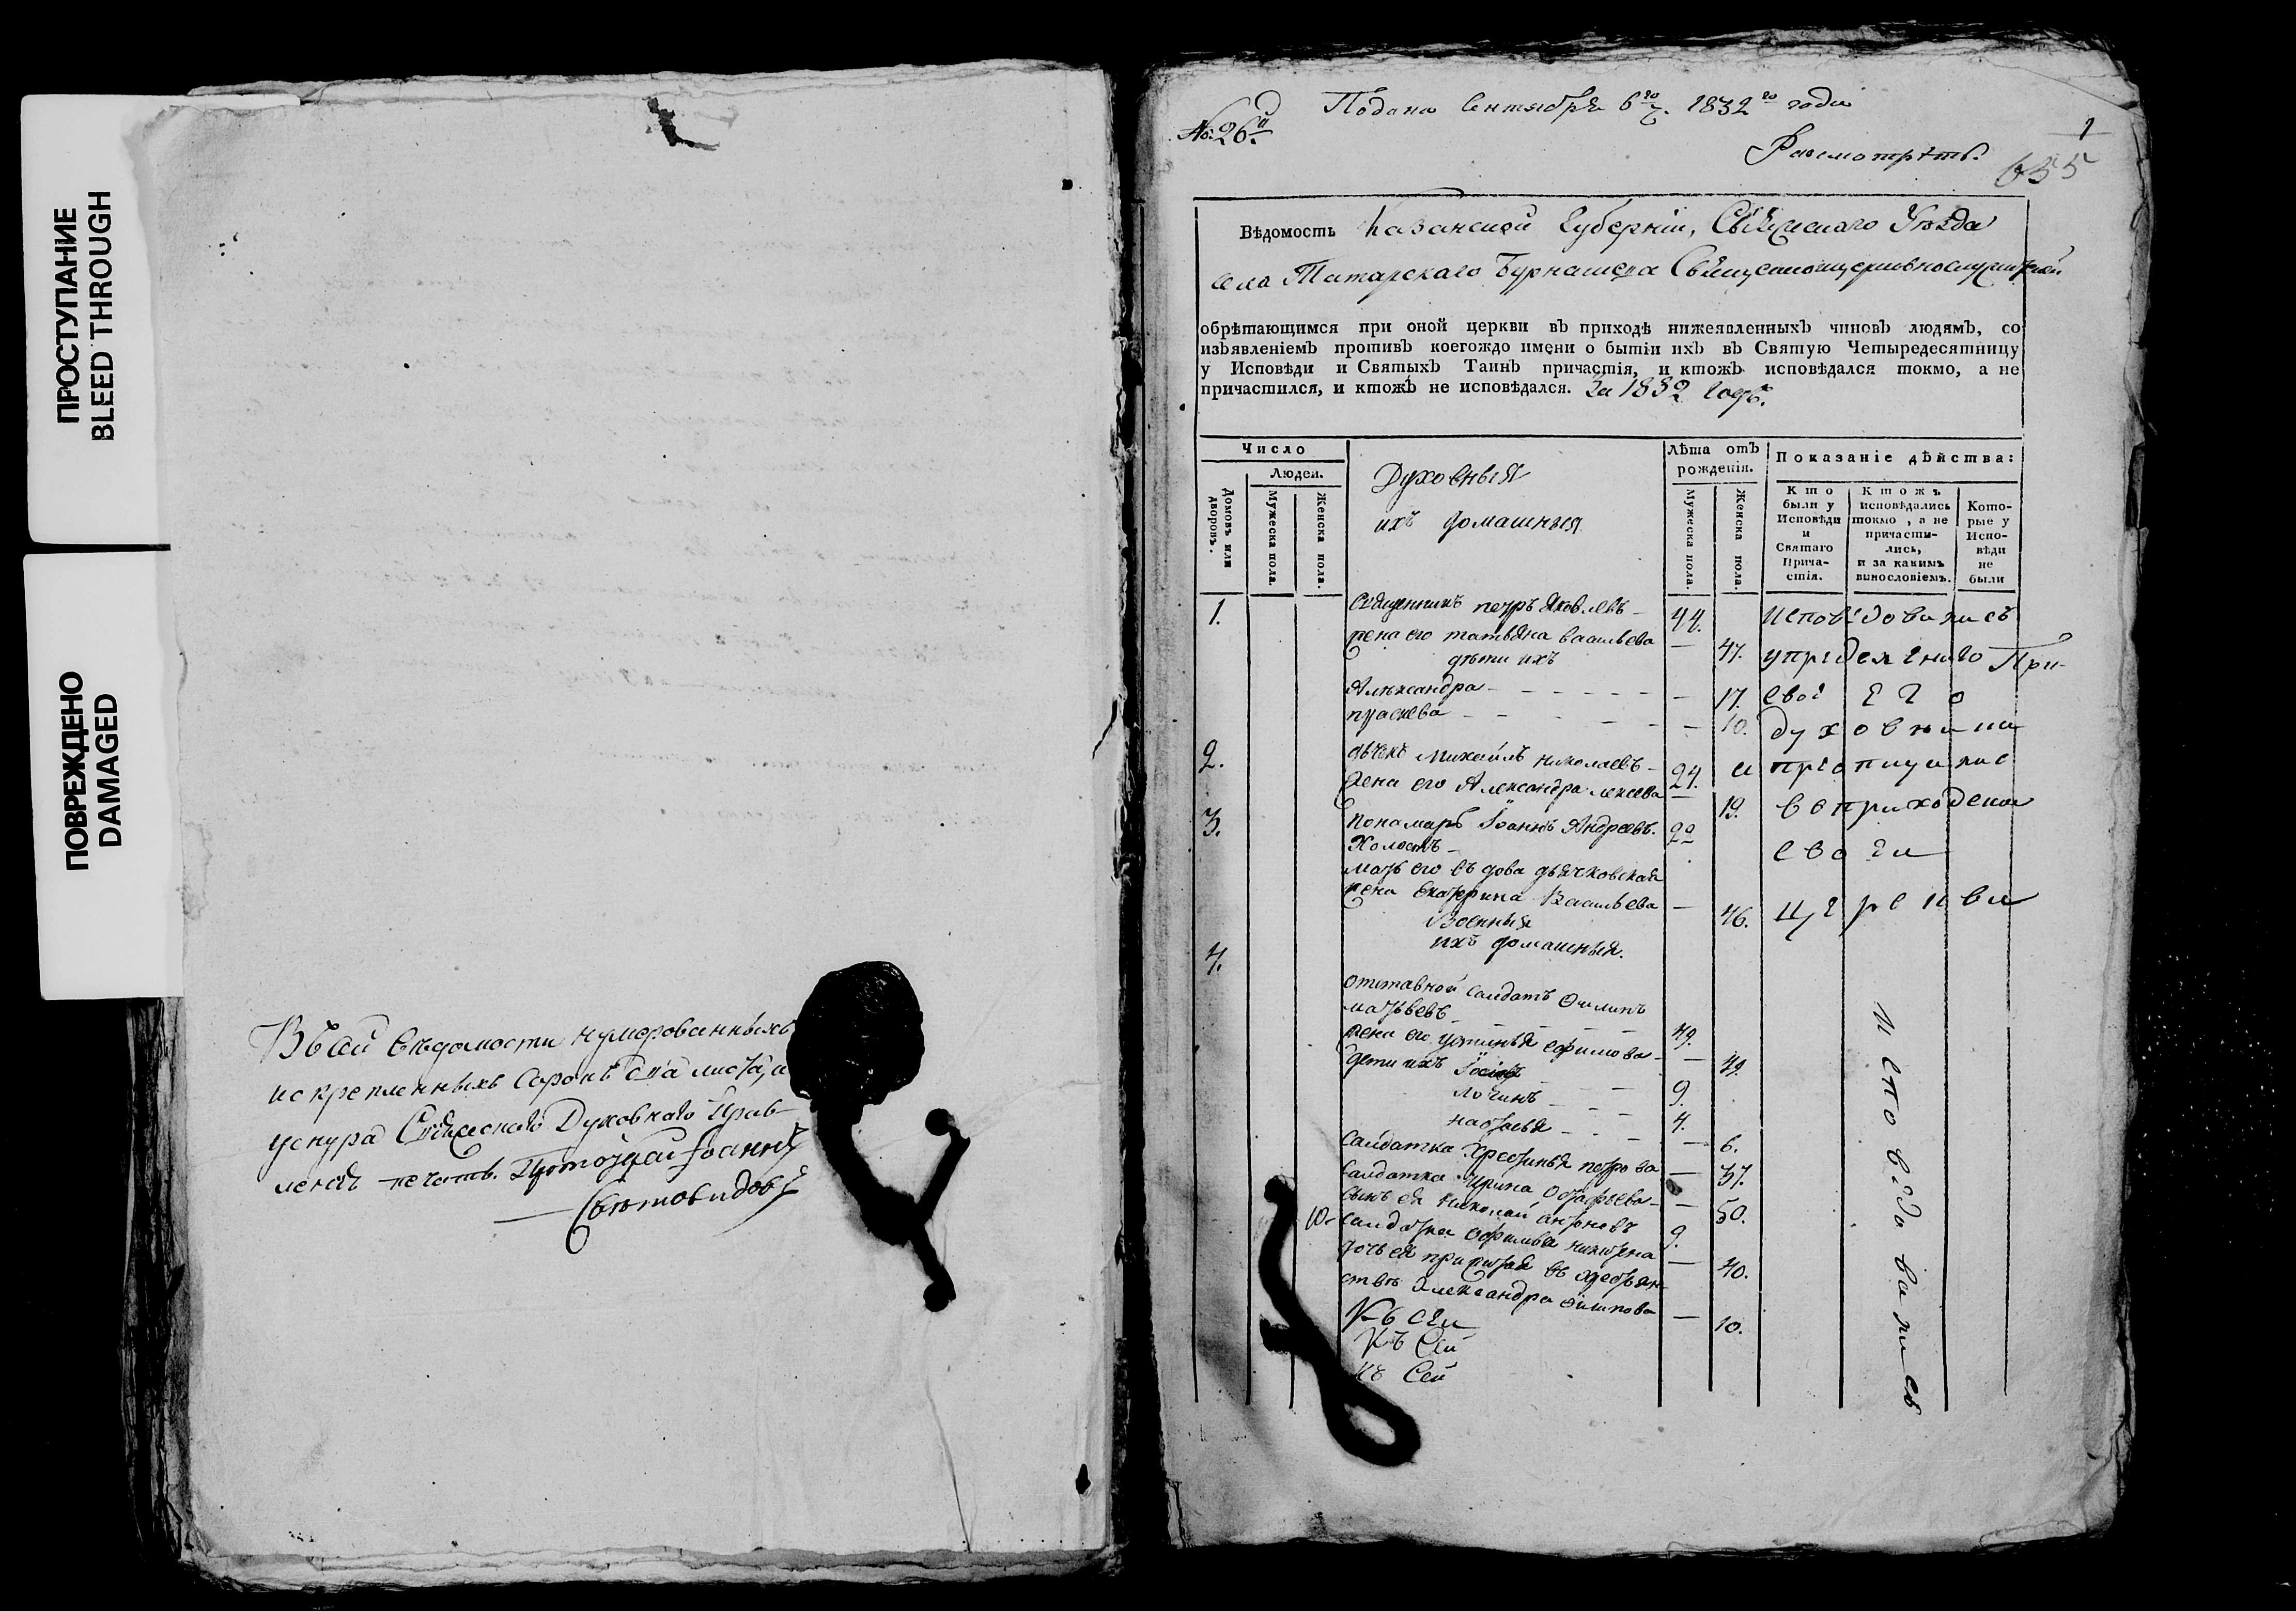 ПРОСТУПАНИЕ
BLEED THROUGH
ПОВРЕЖДЕНО
DAMAGED
В сей ведомости нумерованныхъ
искрепленныхъ сорокъ два листа, и
шнура Свіяжскаго Духовнаго Прав-
ленія печать. Протоіерей Іоаннъ
Световидовъ
№ 26й
Подана Сентября 6го ч. 1832го года
Разсмотрѣть.
1
655
Вѣдомость Казанской Губерніи, Свіяжскаго Уѣзда
села Татарскаго Бурнашева
обрѣтающимся при оной церкви въ приходѣ нижеявленныхъ чиновъ людямъ, со
изъявленіемъ противъ коегождо имени о бытіи ихъ въ Святую Четыредесятницу
у Исповѣди и Святыхъ Таинъ причастія, и ктожъ исповѣдался токмо, а не
причастился, и ктожъ не исповѣдался. За 1832 годъ.
Число
Людей.
Домовъ или дворовъ.
Мужеска пола.
Женска пола.
Духовныя
ихъ домашныя
Лѣта отъ рожденія.
Мужеска пола.
Женска пола.
Показаніе дѣйства:
Кто были у Исповѣди и Святаго Прича-стія.
Ктожъ исповѣдались токмо, а не причасти-лись, и за какимъ винословіемъ.
Кото-рые у Испо-вѣди не были
1. Священникъ петръ Яковлевъ 44. исповѣдовались
жена его татьяна васильева — 47. При-
дѣти ихъ
Александра — 17. своего
праскева — 10. духовника
2. дьчекъ Михайлъ николаевъ 24. и
жена его Александра алексева — 19. в приходской
3. пономарь Іоаннъ Андреевъ. 22
Холостъ своей
мать его вдова дьячковская
жена Екатерина Васильева — 46. церкви
Военныя
ихъ домашныя.
4.
отставной салдатъ Филипъ
матвѣевъ 49.
жена его устинья ефимова — 49.
дети ихъ Іосифъ 9.
логинъ 4.
наталья — 6.
Салдатка Хрестинья петрова — 37.
Салдатка Ирина — 50.
сынъ ея николай антоновъ 9.
салдатка офимья никитена — 40.
дочь ея прижитая въ
Александра филипова — 10.
Къ сей
Къ Сей
Къ Сей
исповѣдовались